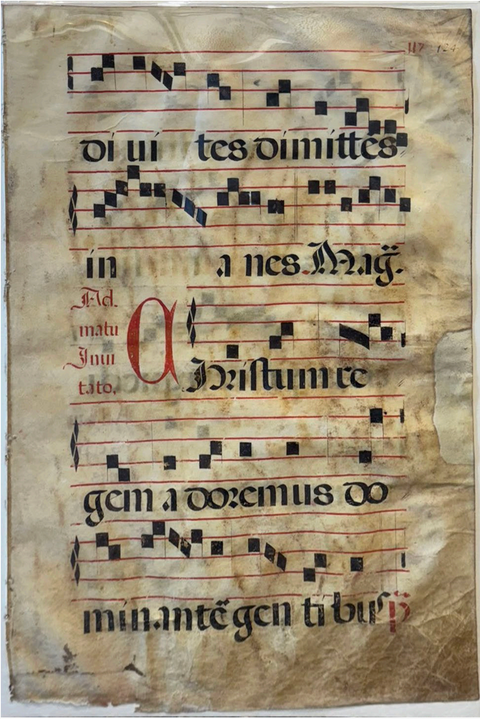 117 124
di ui tes dimittes
in a nes. Mag̃.
Ad.
matu
Inui
tato.
Christum re
gem a doremus do
minantẽ gen ti bus p̃